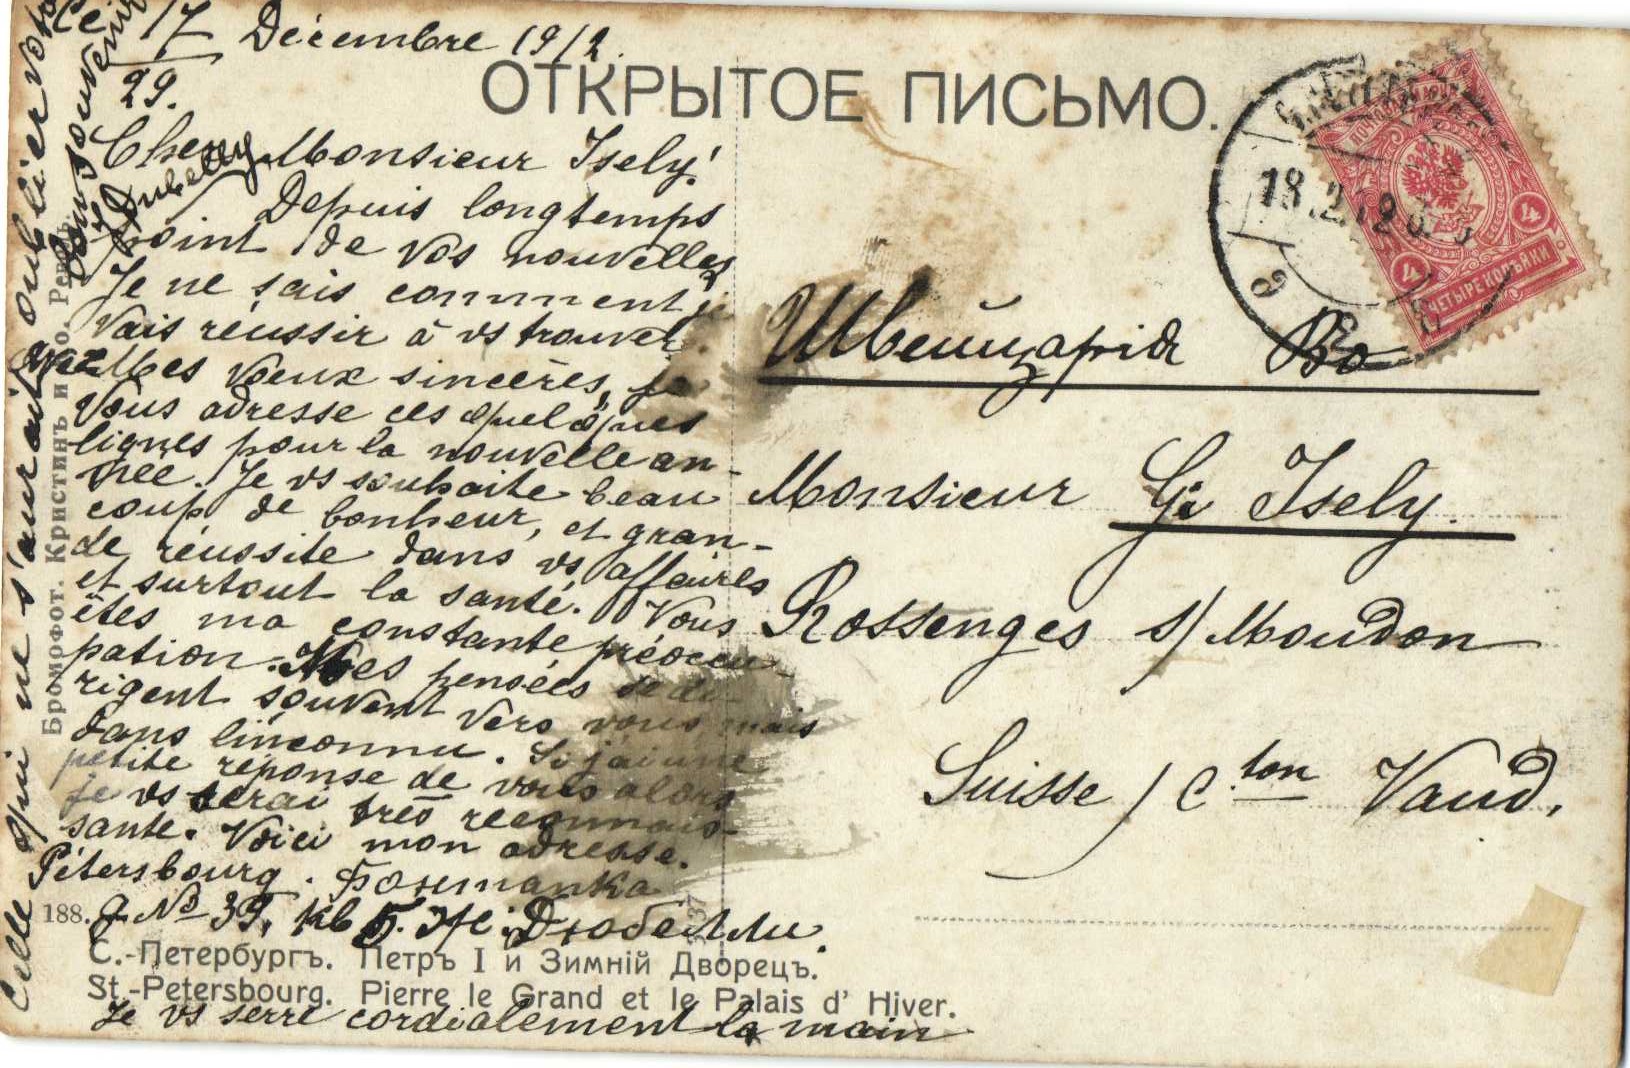 Ce 17/29. Décembre 1912.
ОТКРЫТОЕ ПИСЬМО.
Cher Monsieur Isely!
Depuis longtemps
point de vos nouvelles
Je ne sais comment je
vais réussir à vs trouver.
Mes voeux sincères, je
vous adresse ces quelques
lignes pour la nouvelle an-
née. Je vs souhaite beau
coup de bonheur, et gran-
de réussite dans vs affaires
et surtout la santé. Vous
êtes ma constante préoccu
pation. Mes pensées se di-
rigent souvent vers vous mais
dans l'inconnu. Si j'ai une
petite réponse de vous alors
je vs serai très reconnais-
sante. Voici mon adresse.
Pétersbourg. Фонтанка
д № 39, кв 5. Жи. Дюбелли.
Je vs serre cordialement la main
Celle qui ne s'aurait oublier
souvenir
Dubelly
Швейцарія Во
Monsieur G. Isely.
Rossenges s/Moudon
Suisse / Cton Vaud.
18.12.12
ЧЕТЫРЕ КОПѢЙКИ
4
4
Бромофот. Кристинъ и Ко. Ревель.
188.
С.-Петербургъ. Петръ I и Зимній Дворецъ.
St.-Petersbourg. Pierre le Grand et le Palais d' Hiver.